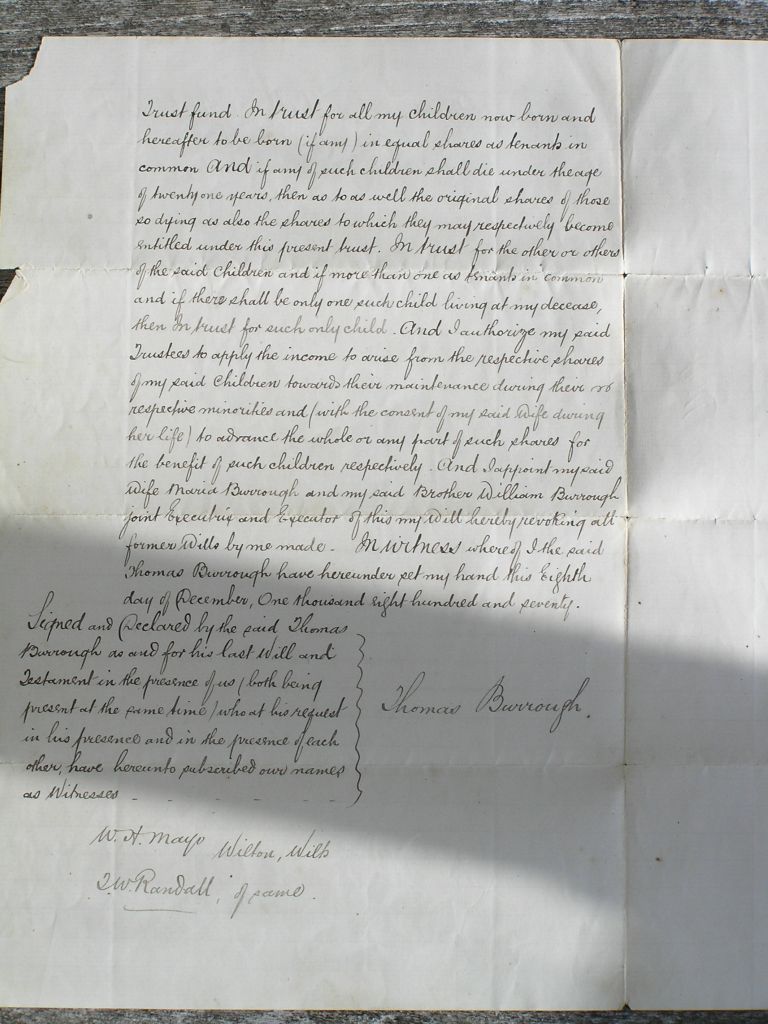 Trust fund. In trust for all my children now born and
hereafter to be born (if any) in equal shares as tenants in
common And if any of such children shall die under the age
of twenty one years, then as to as well the original shares of those
so dying as also the shares to which they may respectively become
entitled under this present trust. In trust for the other or others
of the said Children and if more than one as tenants in common
and if there shall be only one such child living at my decease,
then In trust for such only child. And I authorize my said
Trustees to apply the income to arise from the respective shares
of my said Children towards their maintenance during their
respective minorities and (with the consent of my said Wife during
her life) to advance the whole or any part of such shares for
the benefit of such children respectively. And I appoint my said
Wife Maria Burrough and my said Brother William Burrough
joint Executrix and Executor of this my Will hereby revoking all
former Wills by me made. In witness whereof I the said
Thomas Burrough have hereunder set my hand this Eighth
day of December, One thousand eight hundred and seventy.
Signed and Declared by the said Thomas
Burrough as and for his last Will and
Testament in the presence of us (both being
present at the same time) who at his request
in his presence and in the presence of each
other, have hereunto subscribed our names
as Witnesses - - - - - -
Thomas Burrough.
W. A. Mayo Wilton, Wilts
T. W. Randall, of same.